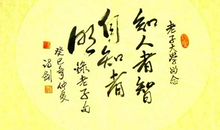 老子大学留念
知人者智
自知者
明
录老子句
癸巳年仲夏